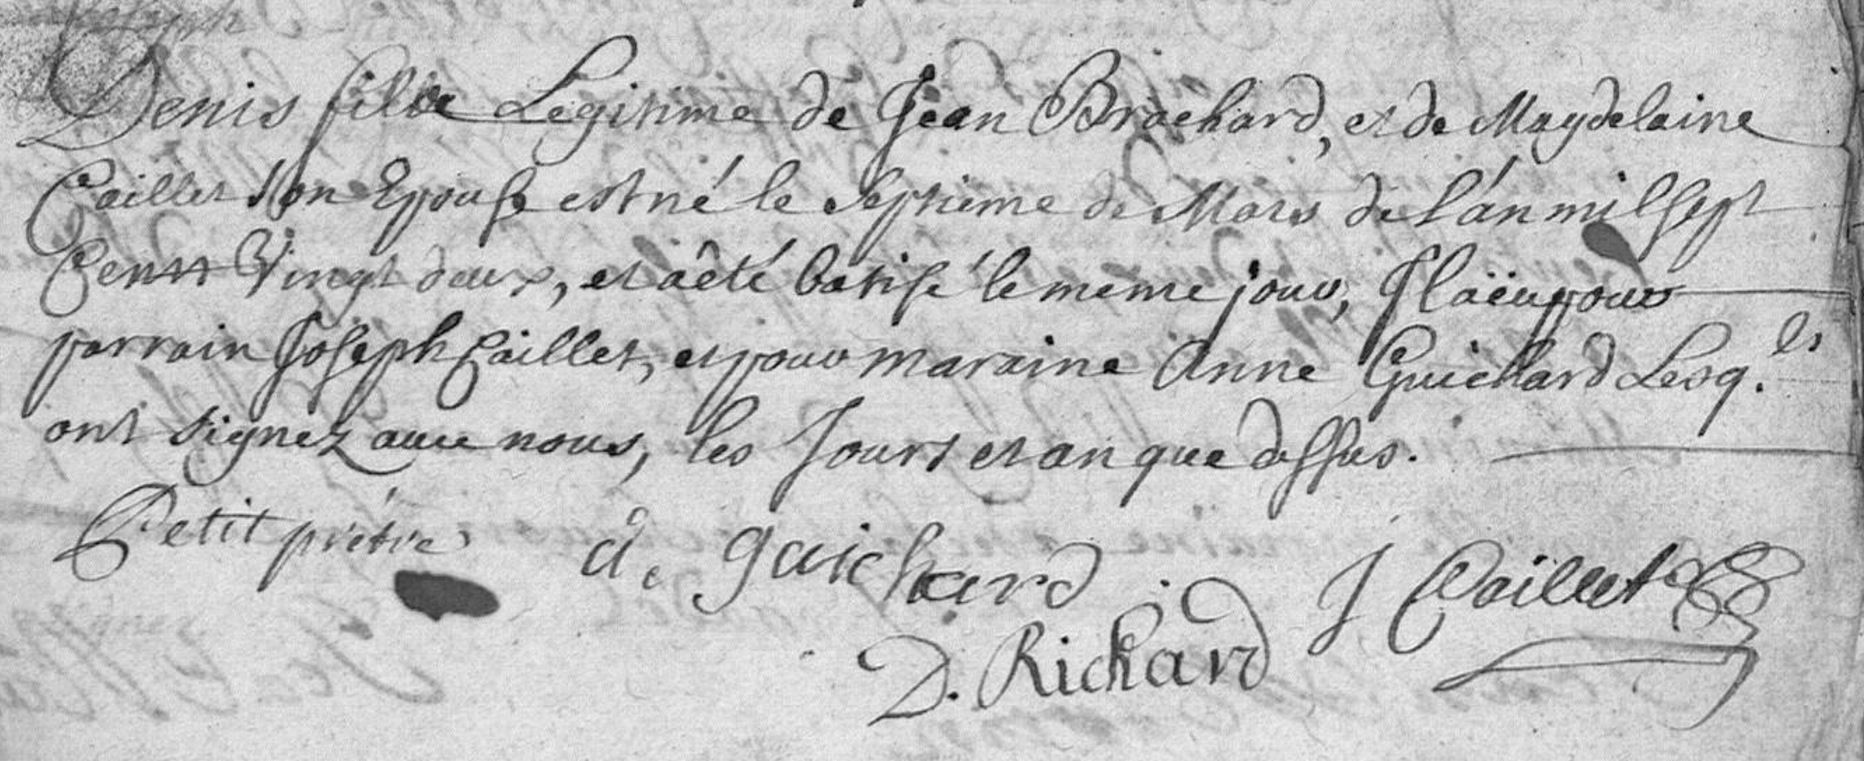 Denis fils Legitime de Jean Brochard, et de Magdelaine
Caillet son Epouse est né le septieme de Mars de l'an mil sept
Cent Vingt deux, et a êté batisé le meme jour, Il a ëu pour
parrain Joseph Caillet, et pour maraine Anne Guichard Lesq.ls
ont signez avec nous, les Jours et an que dessus.
Petit prétre
a. guichard
J Caïllet
D. Richard